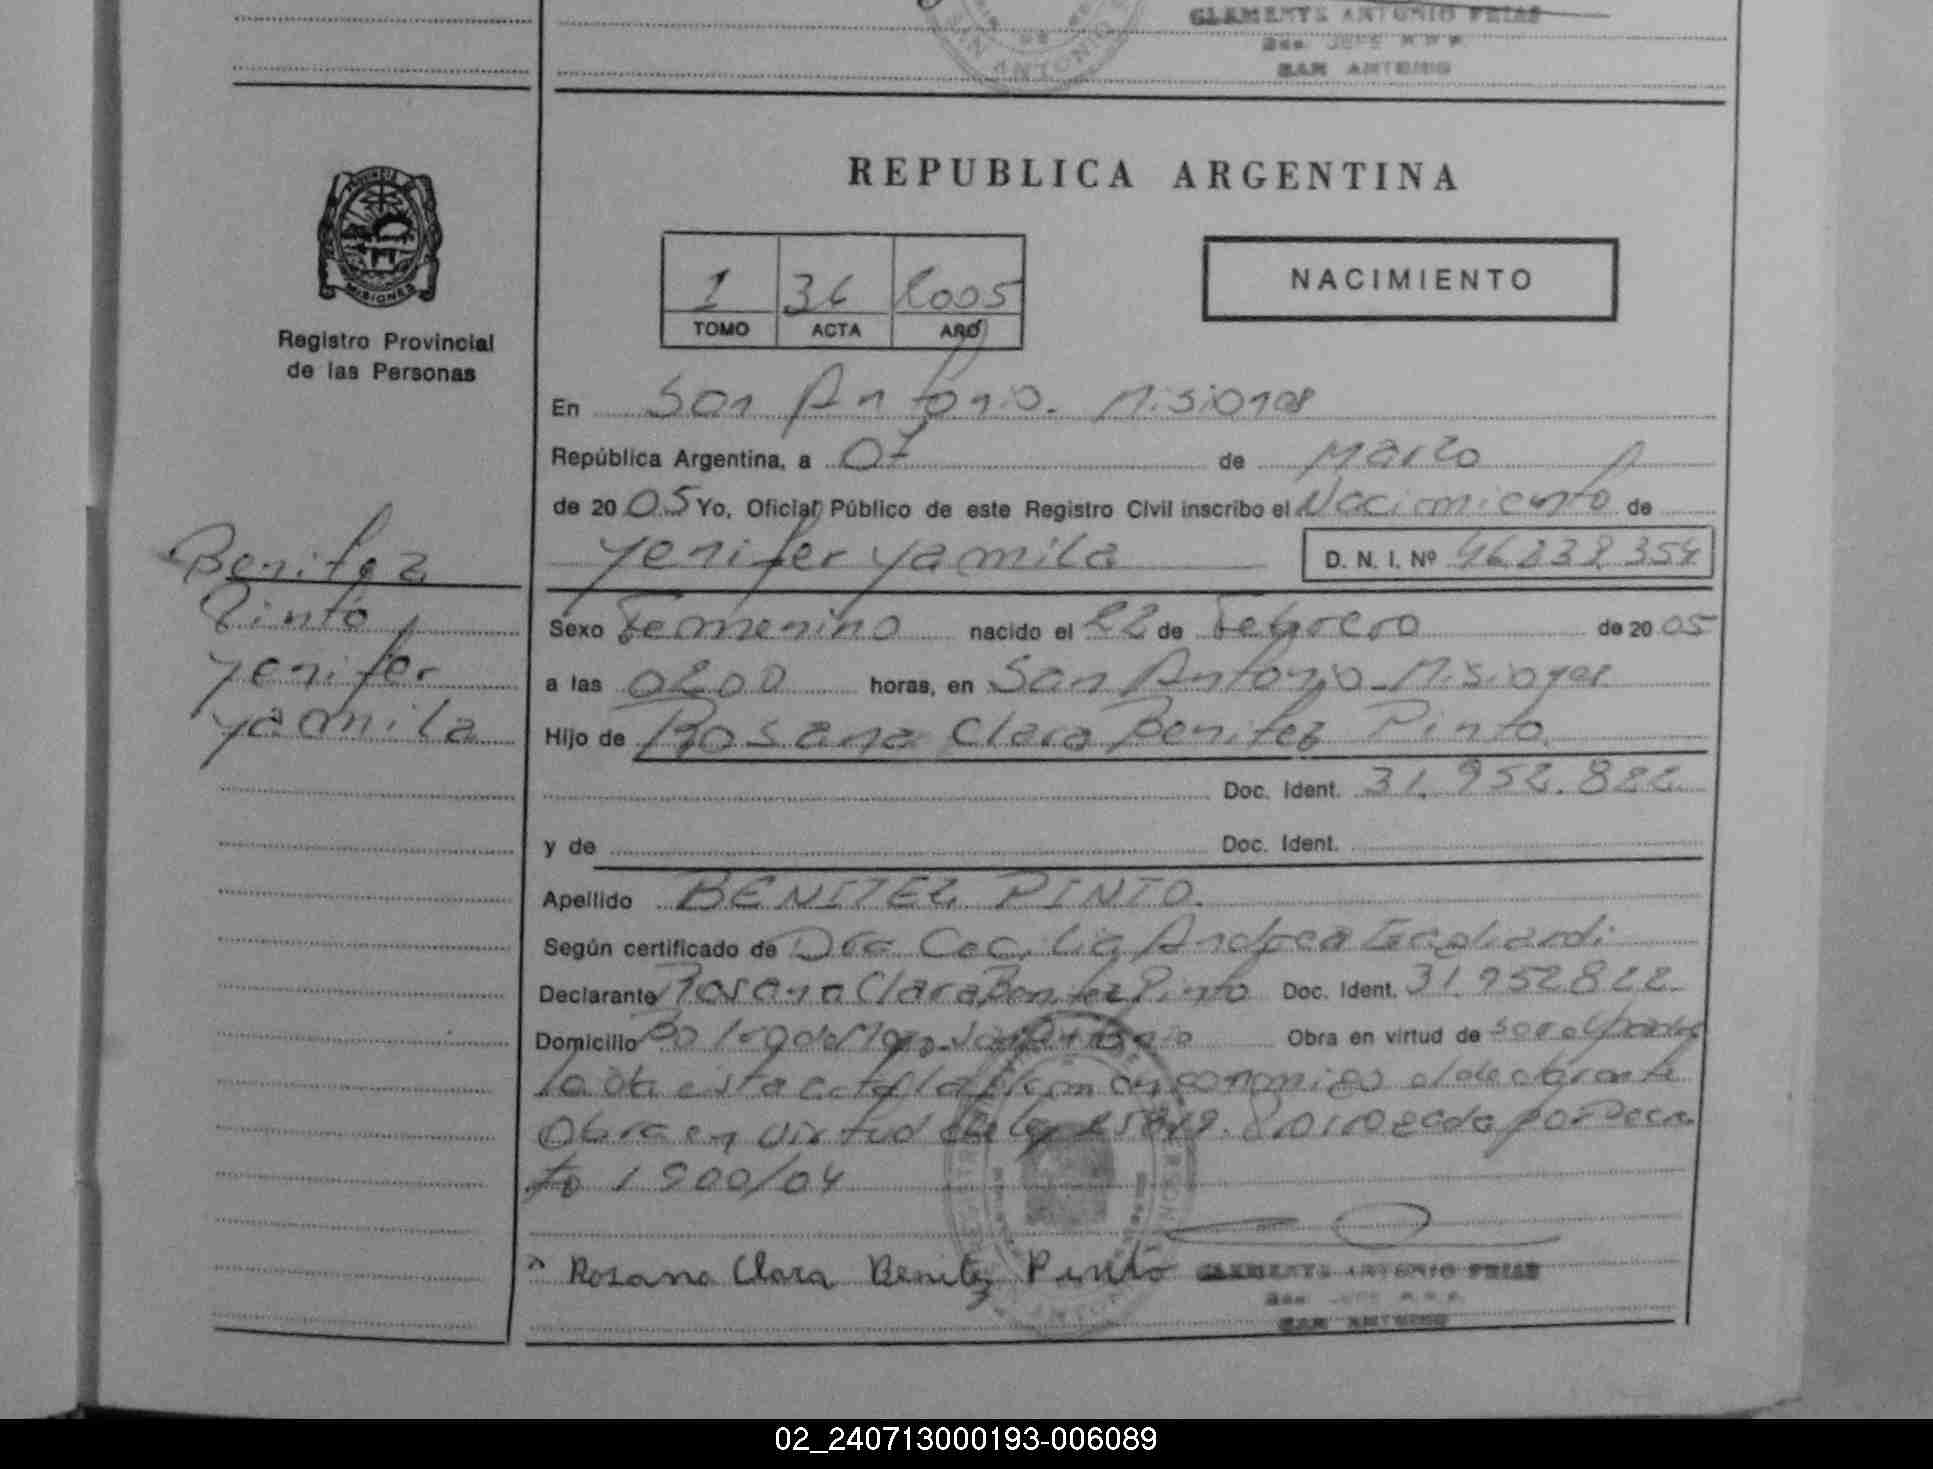 CLEMENTE ANTONIO FRIAS
SAN ANTONIO
REPUBLICA ARGENTINA
PROVINCIA DE
MISIONES
1 36 2005
TOMO ACTA AÑO
NACIMIENTO
Registro Provincial
de las Personas
En San Antonio. Misiones
República Argentina, a 07 de Marzo
de 2005 Yo, Oficial Público de este Registro Civil inscribo el Nacimiento de
Yenifer Yamila D. N. I. Nº 46.838.354
Benitez
Pinto
Yenifer
Yamila
Sexo Femenino nacido el 22 de Febrero de 2005
a las 0200 horas, en San Antonio - Misiones
Hijo de Rosana Clara Benitez Pinto
Doc. Ident. 31.952.822
y de Doc. Ident.
Apellido BENITEZ PINTO.
Según certificado de Dra Cecilia Andrea
Declarante Rosana Clara Benitez Pinto Doc. Ident. 31.952822
Domicilio San Antonio Obra en virtud de
esta acta la firman conmigo el declarante
Obra en virtud de ley 25819. por Decre
to 1900/04
Rosana Clara Benitez Pinto CLEMENTE ANTONIO FRIAS
SAN ANTONIO
02_240713000193-006089